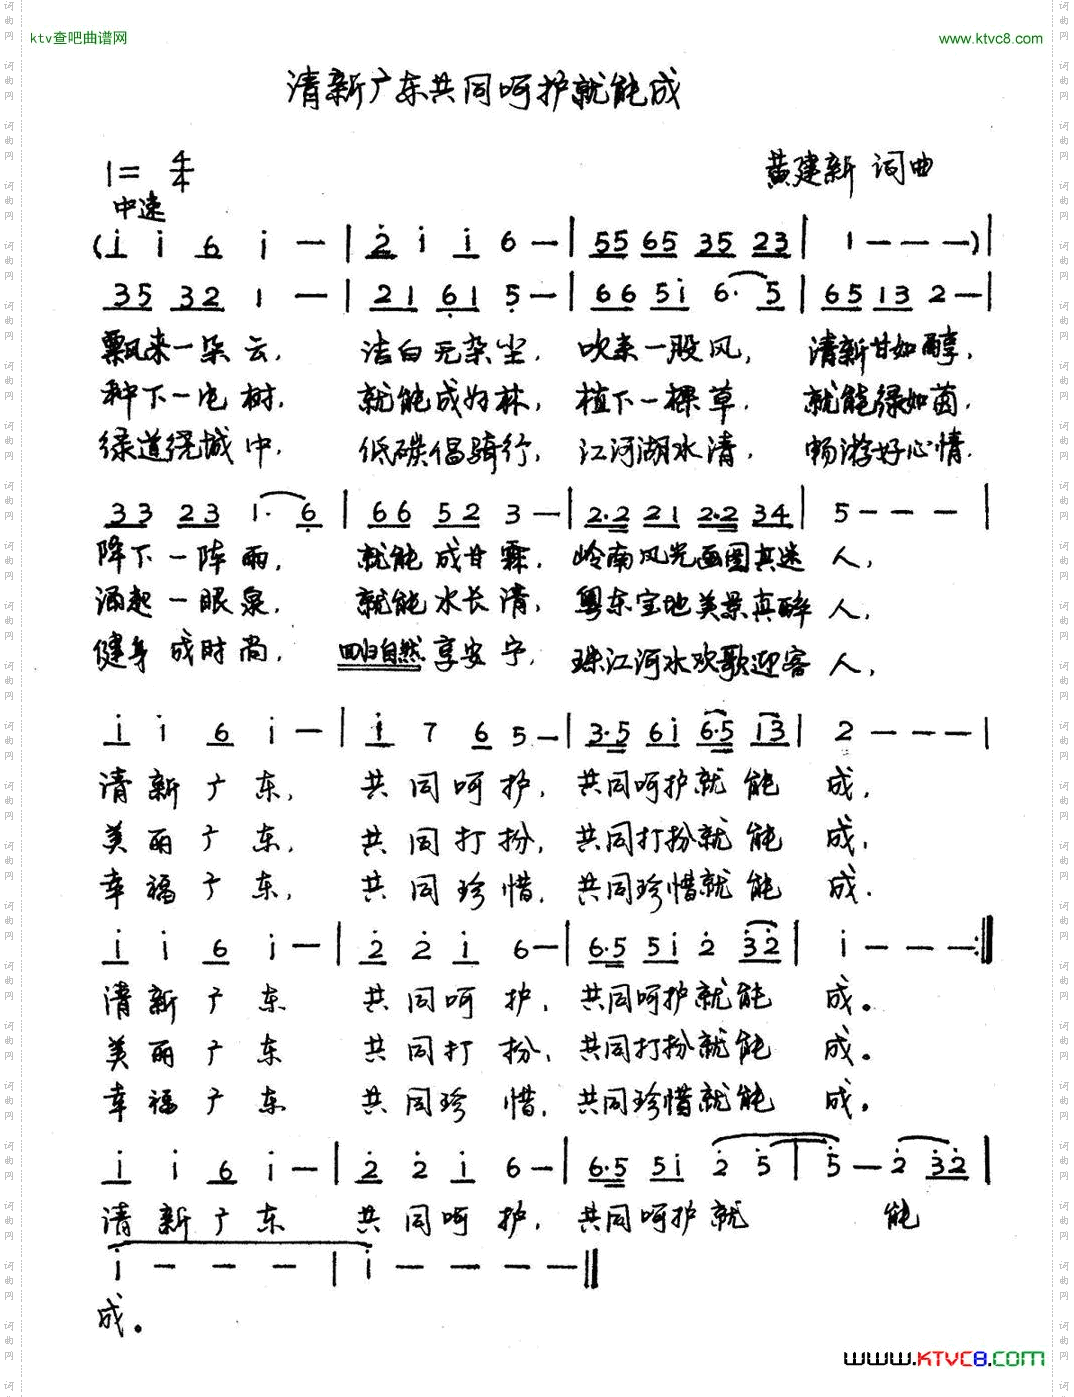 ktv查吧曲谱网
www.ktvc8.com
清新广东共同呵护就能成
1= 4/4
黄建新 词曲
中速
(i i 6 i — | 2 i i 6 — | 55 65 35 23 | 1 — — — ) |
35 32 1 — | 21 61 5 — | 66 5i 6· 5 | 65 13 2 — |
飘来一朵云, 洁白无杂尘, 吹来一股风, 清新甘如醇,
种下一片树, 就能成好林, 植下一棵草, 就能绿如茵,
绿道绕城中, 低碳倡骑行, 江河湖水清, 畅游好心情.
33 23 1· 6 | 66 52 3 — | 2·2 21 2·2 34 | 5 — — — |
降下一阵雨, 就能成甘霖, 岭南风光画图真迷人,
涌起一眼泉, 就能水长清, 粤东宝地美景真醉人,
健身成时尚, 回归自然享安宁, 珠江河水欢歌迎客人,
i i 6 i — | i 7 6 5 — | 3·5 6i 6·5 i3 | 2 — — — |
清新广东, 共同呵护, 共同呵护就能成,
美丽广东, 共同打扮, 共同打扮就能成,
幸福广东, 共同珍惜, 共同珍惜就能成.
i i 6 i — | 2 2 i 6 — | 6·5 5i 2 32 | i — — — :||
清新广东 共同呵护, 共同呵护就能成。
美丽广东 共同打扮, 共同打扮就能成。
幸福广东 共同珍惜, 共同珍惜就能成。
i i 6 i — | 2 2 i 6 — | 6·5 5i 2 5 | 5 — 2 32 |
清新广东 共同呵护, 共同呵护就 能
i — — — | i — — — ||
成。
www.KTVC8.com